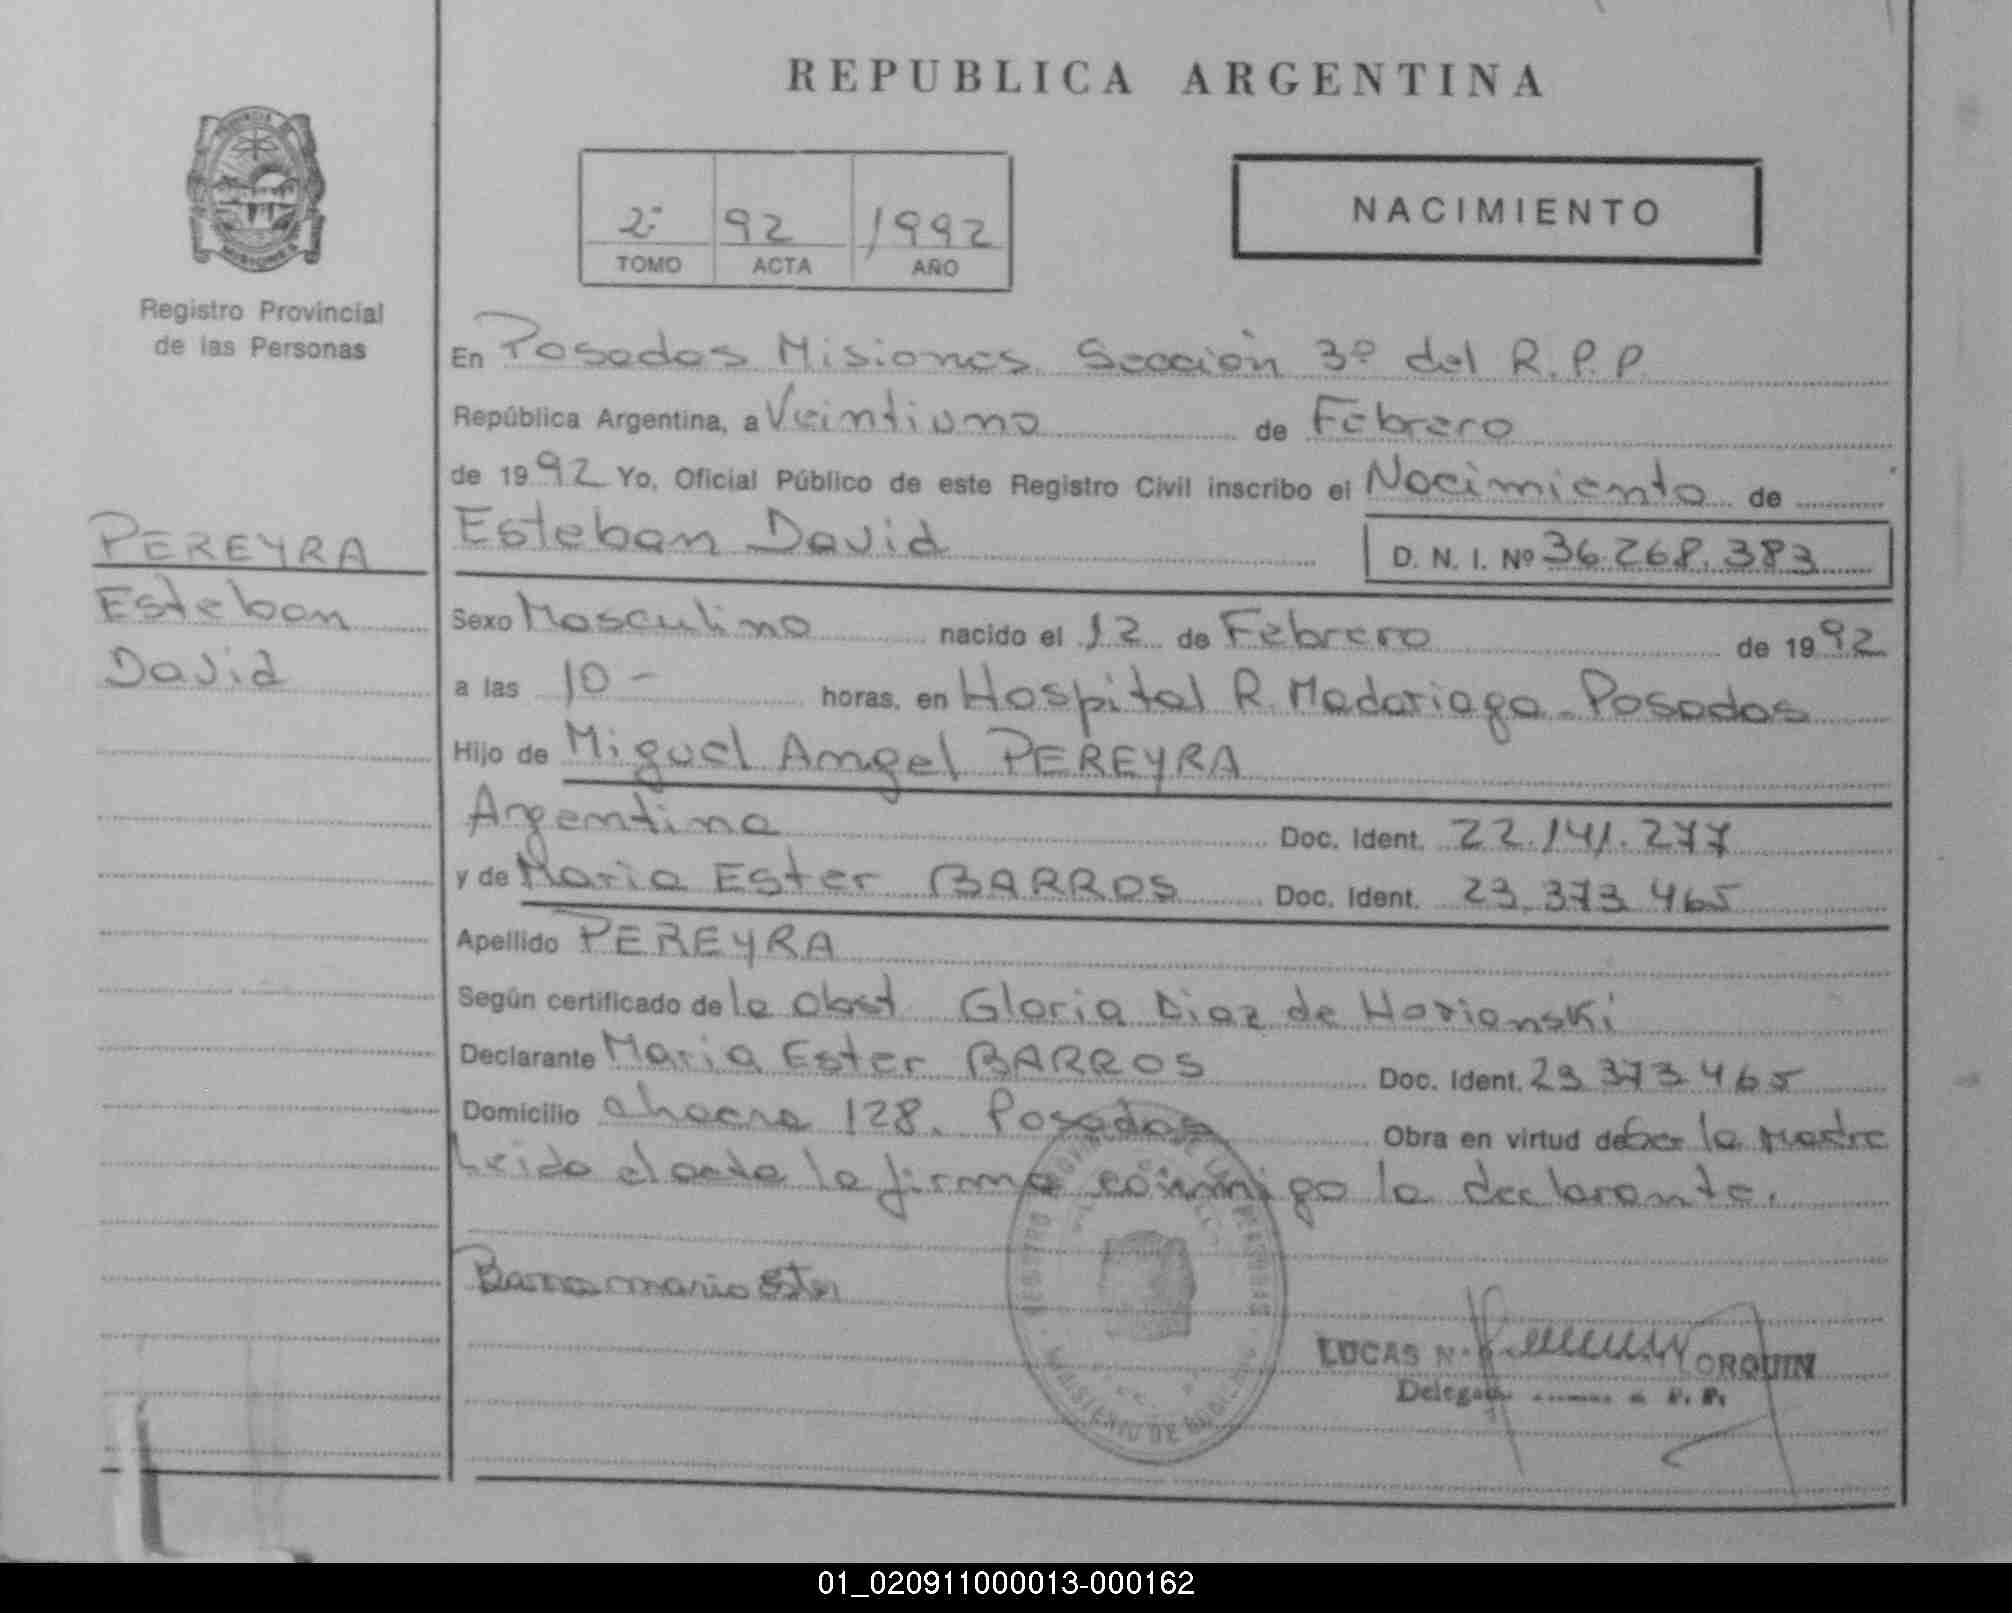 REPUBLICA ARGENTINA
2º 92 1992
TOMO ACTA AÑO
NACIMIENTO
Registro Provincial
de las Personas
En Posadas Misiones Sección 3º del R.P.P.
República Argentina, a Veintiuno de Febrero
de 1992 Yo, Oficial Público de este Registro Civil inscribo el Nacimiento de
Esteban David D. N. I. Nº 36.268.383
PEREYRA
Esteban
David
Sexo Masculino nacido el 12 de Febrero de 1992
a las 10 - horas, en Hospital R. Madariaga - Posadas
Hijo de Miguel Angel PEREYRA
Argentina Doc. Ident. 22.141.277
y de Maria Ester BARROS Doc. Ident. 23.373.465
Apellido PEREYRA
Según certificado de la Obst Gloria Diaz de
Declarante Maria Ester BARROS Doc. Ident. 23 373 465
Domicilio chacra 128. Posadas Obra en virtud de Ser la Madre
Leido el acta la firma conmigo la declarante.
Barros maria Ester
LUCAS N.
Delegado R. P. P.
01_020911000013-000162